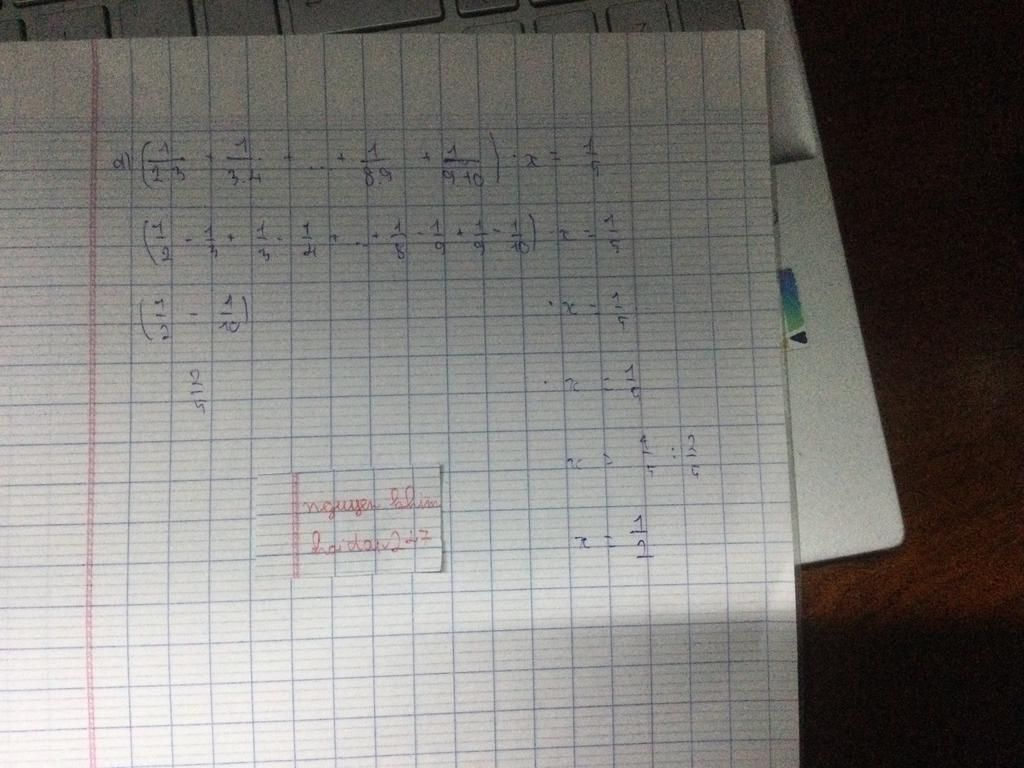 d) (1/2.3 + 1/3.4 + ... + 1/8.9 + 1/9.10) . x = 1/5
(1/2 - 1/3 + 1/3 - 1/4 + ... + 1/8 - 1/9 + 1/9 - 1/10) . x = 1/5
(1/2 - 1/10) . x = 1/5
2/5 . x = 1/5
x = 1/5 : 2/5
x = 1/2
nguyen
hoidap247